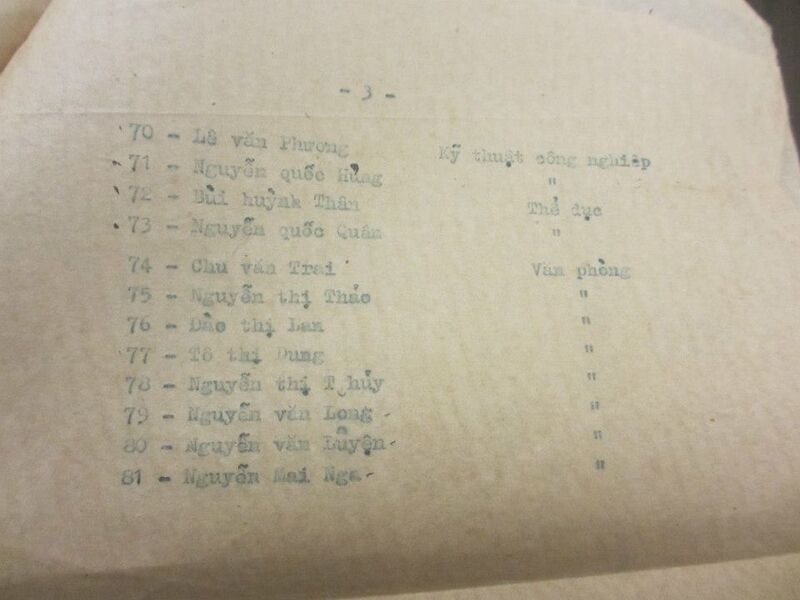 - 3 -
70 - Lê văn Phượng Kỹ thuật công nghiệp
71 - Nguyễn quốc Hùng "
72 - Bùi huỳnh Thân Thể dục
73 - Nguyễn quốc Quân "
74 - Chu văn Trai Văn phòng
75 - Nguyễn thị Thảo "
76 - Đào thị Lan "
77 - Tô thị Dung "
78 - Nguyễn thị Thủy "
79 - Nguyễn văn Long - "
80 - Nguyễn văn Luyện - "
81 - Nguyễn Mai Nga - "